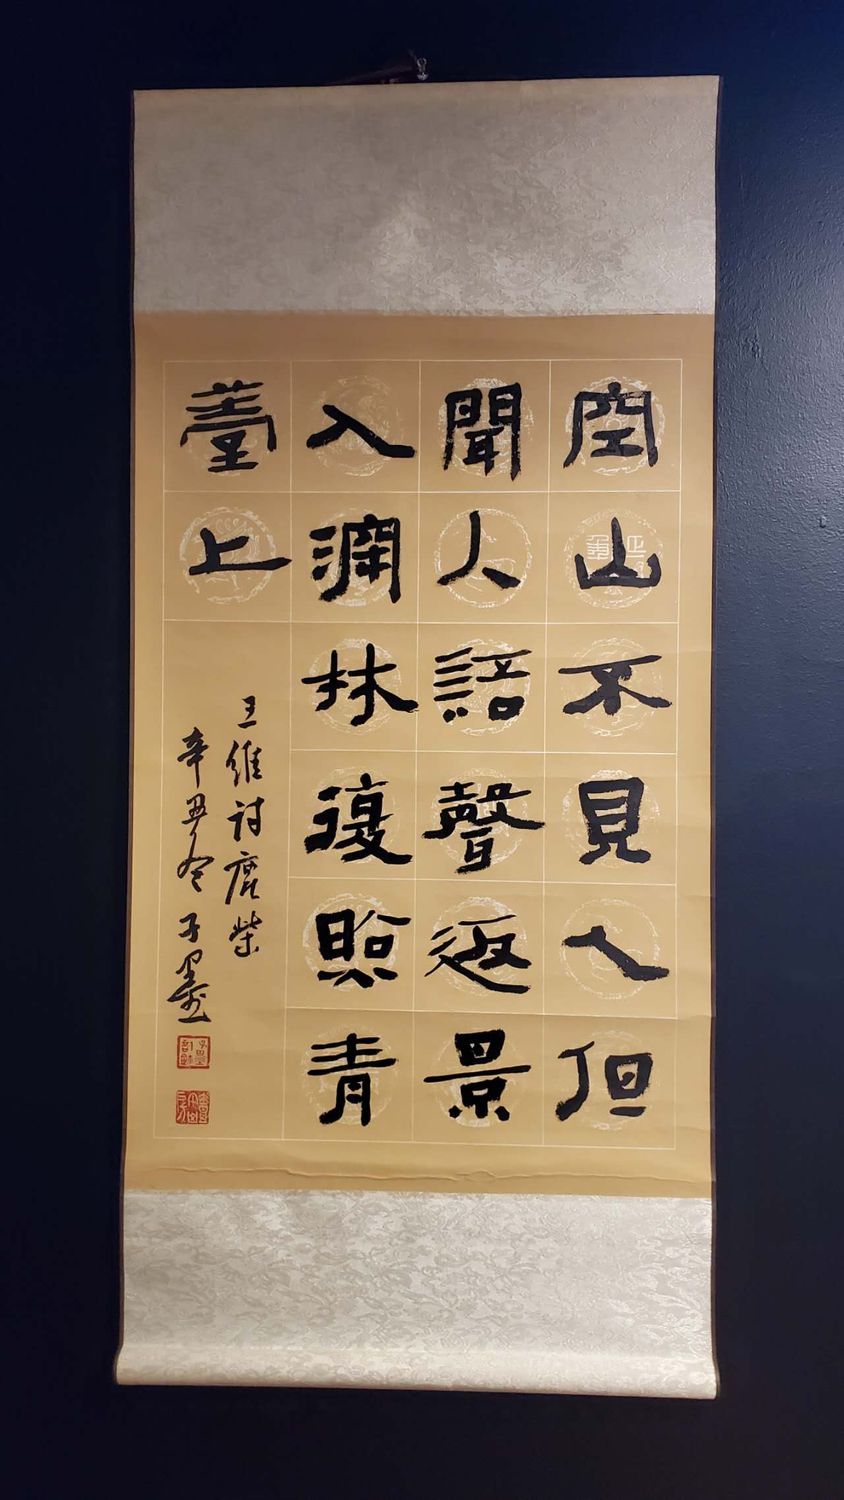 空山不見人但
聞人語聲返景
入深林復照青
薹上
王維詩鹿柴
辛丑冬子墨